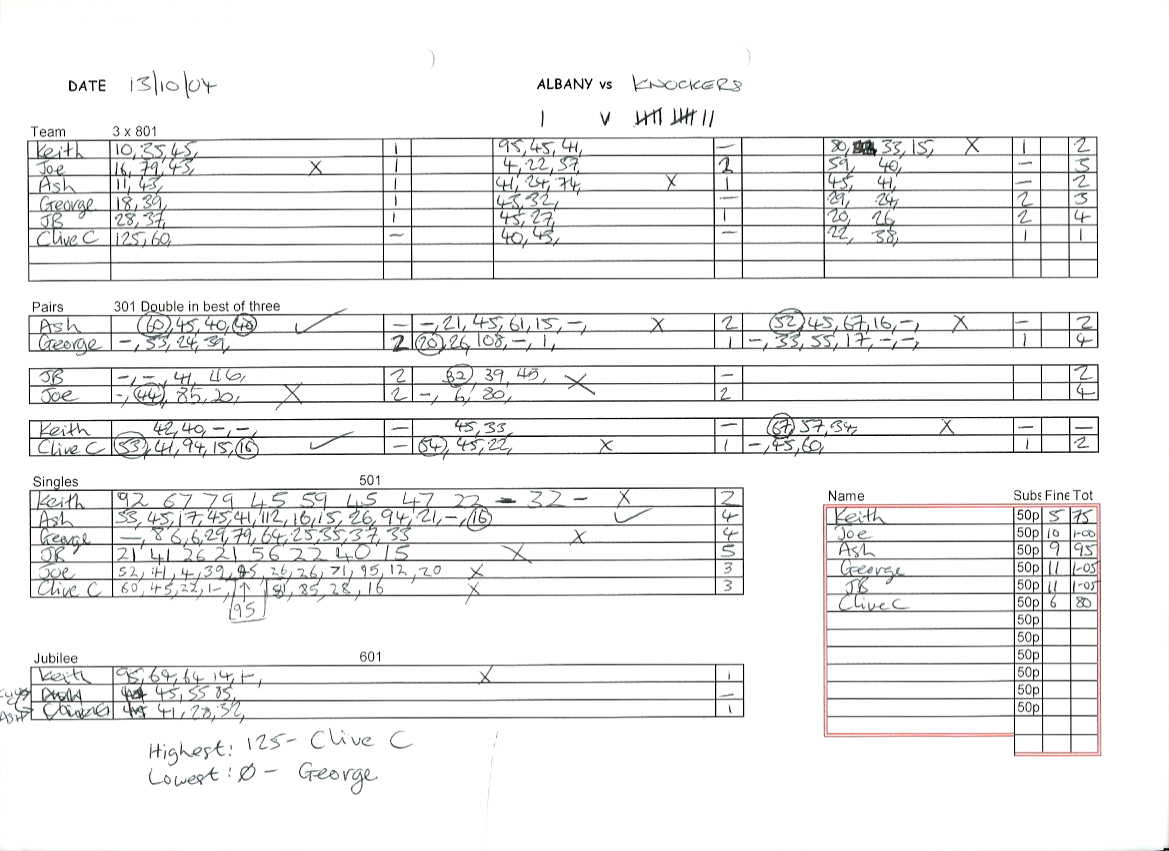 DATE 13/10/04 ALBANY vs KNOCKERS
1 V 12
Team 3 x 801
Keith 10, 35, 45, 1 95, 45, 41, — 80, 33, 15, X 1 2
Joe 16, 79, 43, X 1 4, 22, 37, 2 59, 40, — 3
Ash 11, 43, 1 41, 24, 74, X 1 45, 41, — 2
George 18, 39, 1 43, 32, — 29, 24, 2 3
JB 28, 37, 1 45, 27, 1 20, 26, 2 4
Clive C 125, 60, — 40, 43, 22, 38, 1 1
Pairs 301 Double in best of three
Ash 60, 45, 40, 40 ✓ — –, 21, 45, 61, 15, –, X 2 52, 45, 67, 16, –, X — 2
George –, 53, 24, 39, 2 20, 26, 108, –, 1, 1 –, 33, 55, 17, –, –, 1 4
JB –, –, 41, 46, 2 32, 39, 45, X — 2
Joe –, 44, 85, 20, X 2 –, 6, 80, 2 4
Keith 42, 40, –, –, — 45, 33, — 67, 57, 34, X — —
Clive C 53, 41, 94, 15, 16 ✓ — 54, 45, 22, X 1 –, 45, 60, 1 2
Singles 501
Keith 92 67 79 45 59 45 47 22 – 32 – X 2
Ash 33, 45, 17, 45, 41, 112, 16, 15, 26, 94, 21, –, 16 ✓ 4
George —, 86, 6, 29, 79, 64, 25, 35, 37, 33 X 4
JB 21 41 26 21 56 22 40 15 X 5
Joe 52, 41, 4, 39, 95, 26, 26, 71, 95, 12, 20 X 3
Clive C 60, 45, 22, 1–, ↑ 81, 85, 28, 16 X 3
95
Name Subs Fine Tot
Keith 50p 5 75
Joe 50p 10 1-00
Ash 50p 9 95
George 50p 11 1-05
JB 50p 11 1-05
Clive C 50p 6 80
50p
50p
50p
50p
50p
50p
Jubilee 601
Keith 95, 64, 64, 14, 1–, X 1
45, 55 85, —
Ash 41, 28, 32, 1
Highest: 125 – Clive C
Lowest: Ø – George